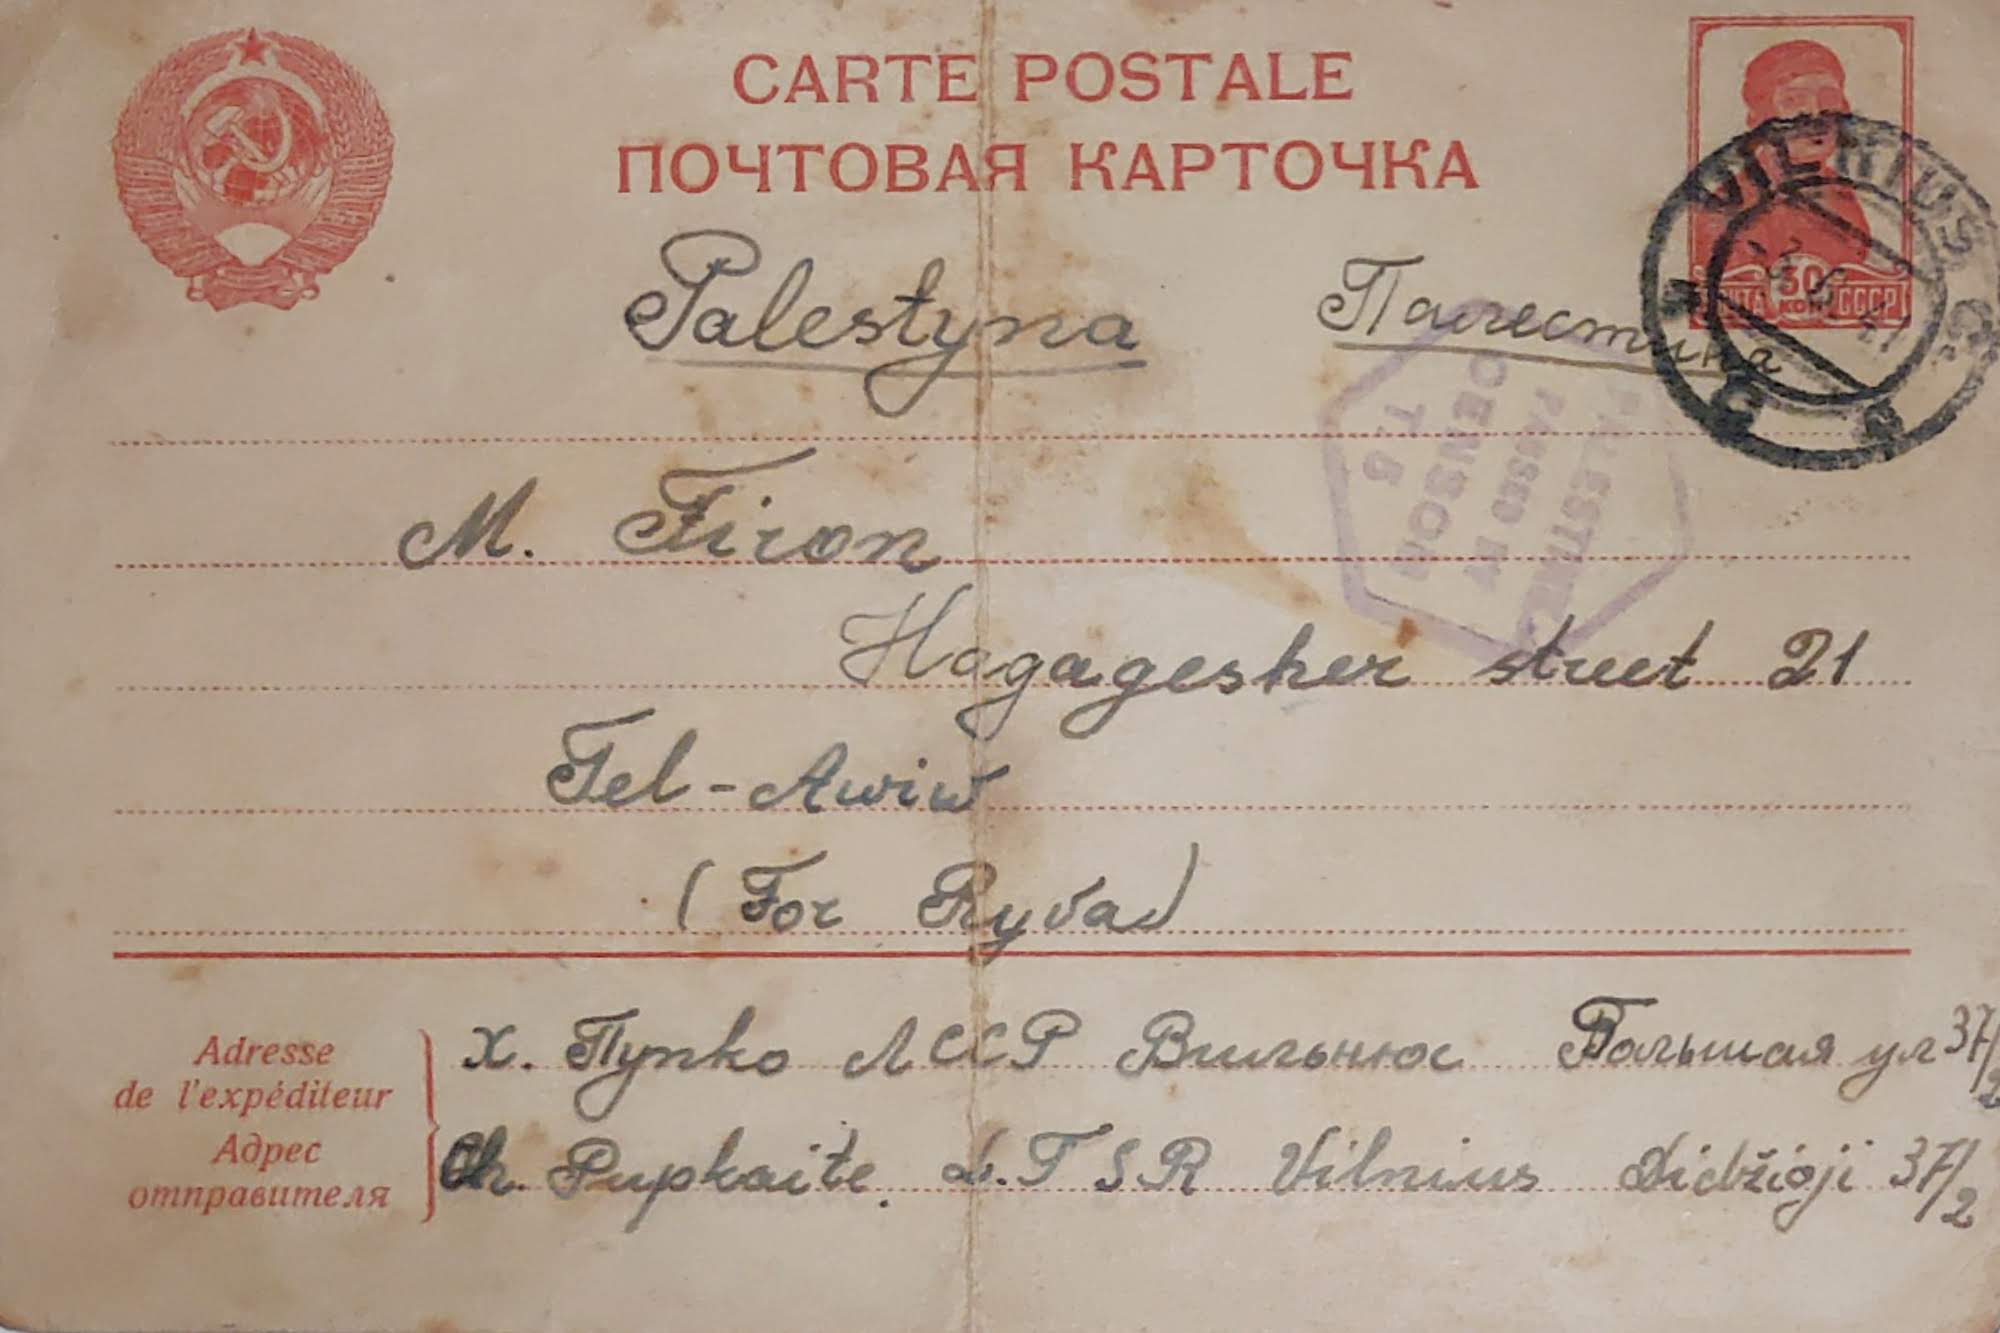 CARTE POSTALE
ПОЧТОВАЯ КАРТОЧКА
30
КОП
СССР
VILNIUS C.
Palestyna Палестина
PALESTINE
PASSED BY
CENSOR
T.5
M. Firon
Hagagesher street 21
Tel-Awiw
(For Ryva)
Adresse
de l'expéditeur
Адрес
отправителя
Х. Пупко ЛССР Вильнюс Большая ул 37/2
Ch. Pupkaite. L.TSR Vilnius Didžioji 37/2